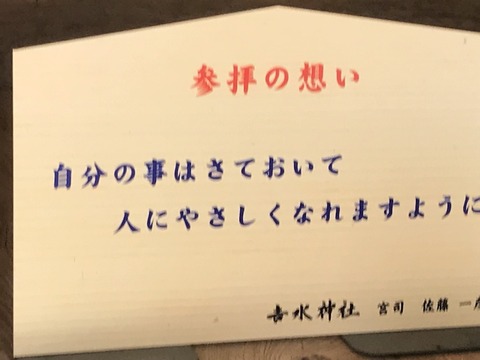 参拝の想い
自分の事はさておいて
人にやさしくなれますように
吉水神社 宮司 佐藤 一彦